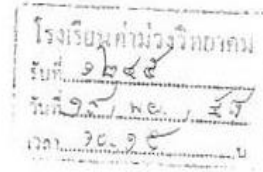 โรงเรียนคำม่วงวิทยาคม
รับที่ ๑๒๔๕
วันที่ / พย. / ๔๘
เวลา น